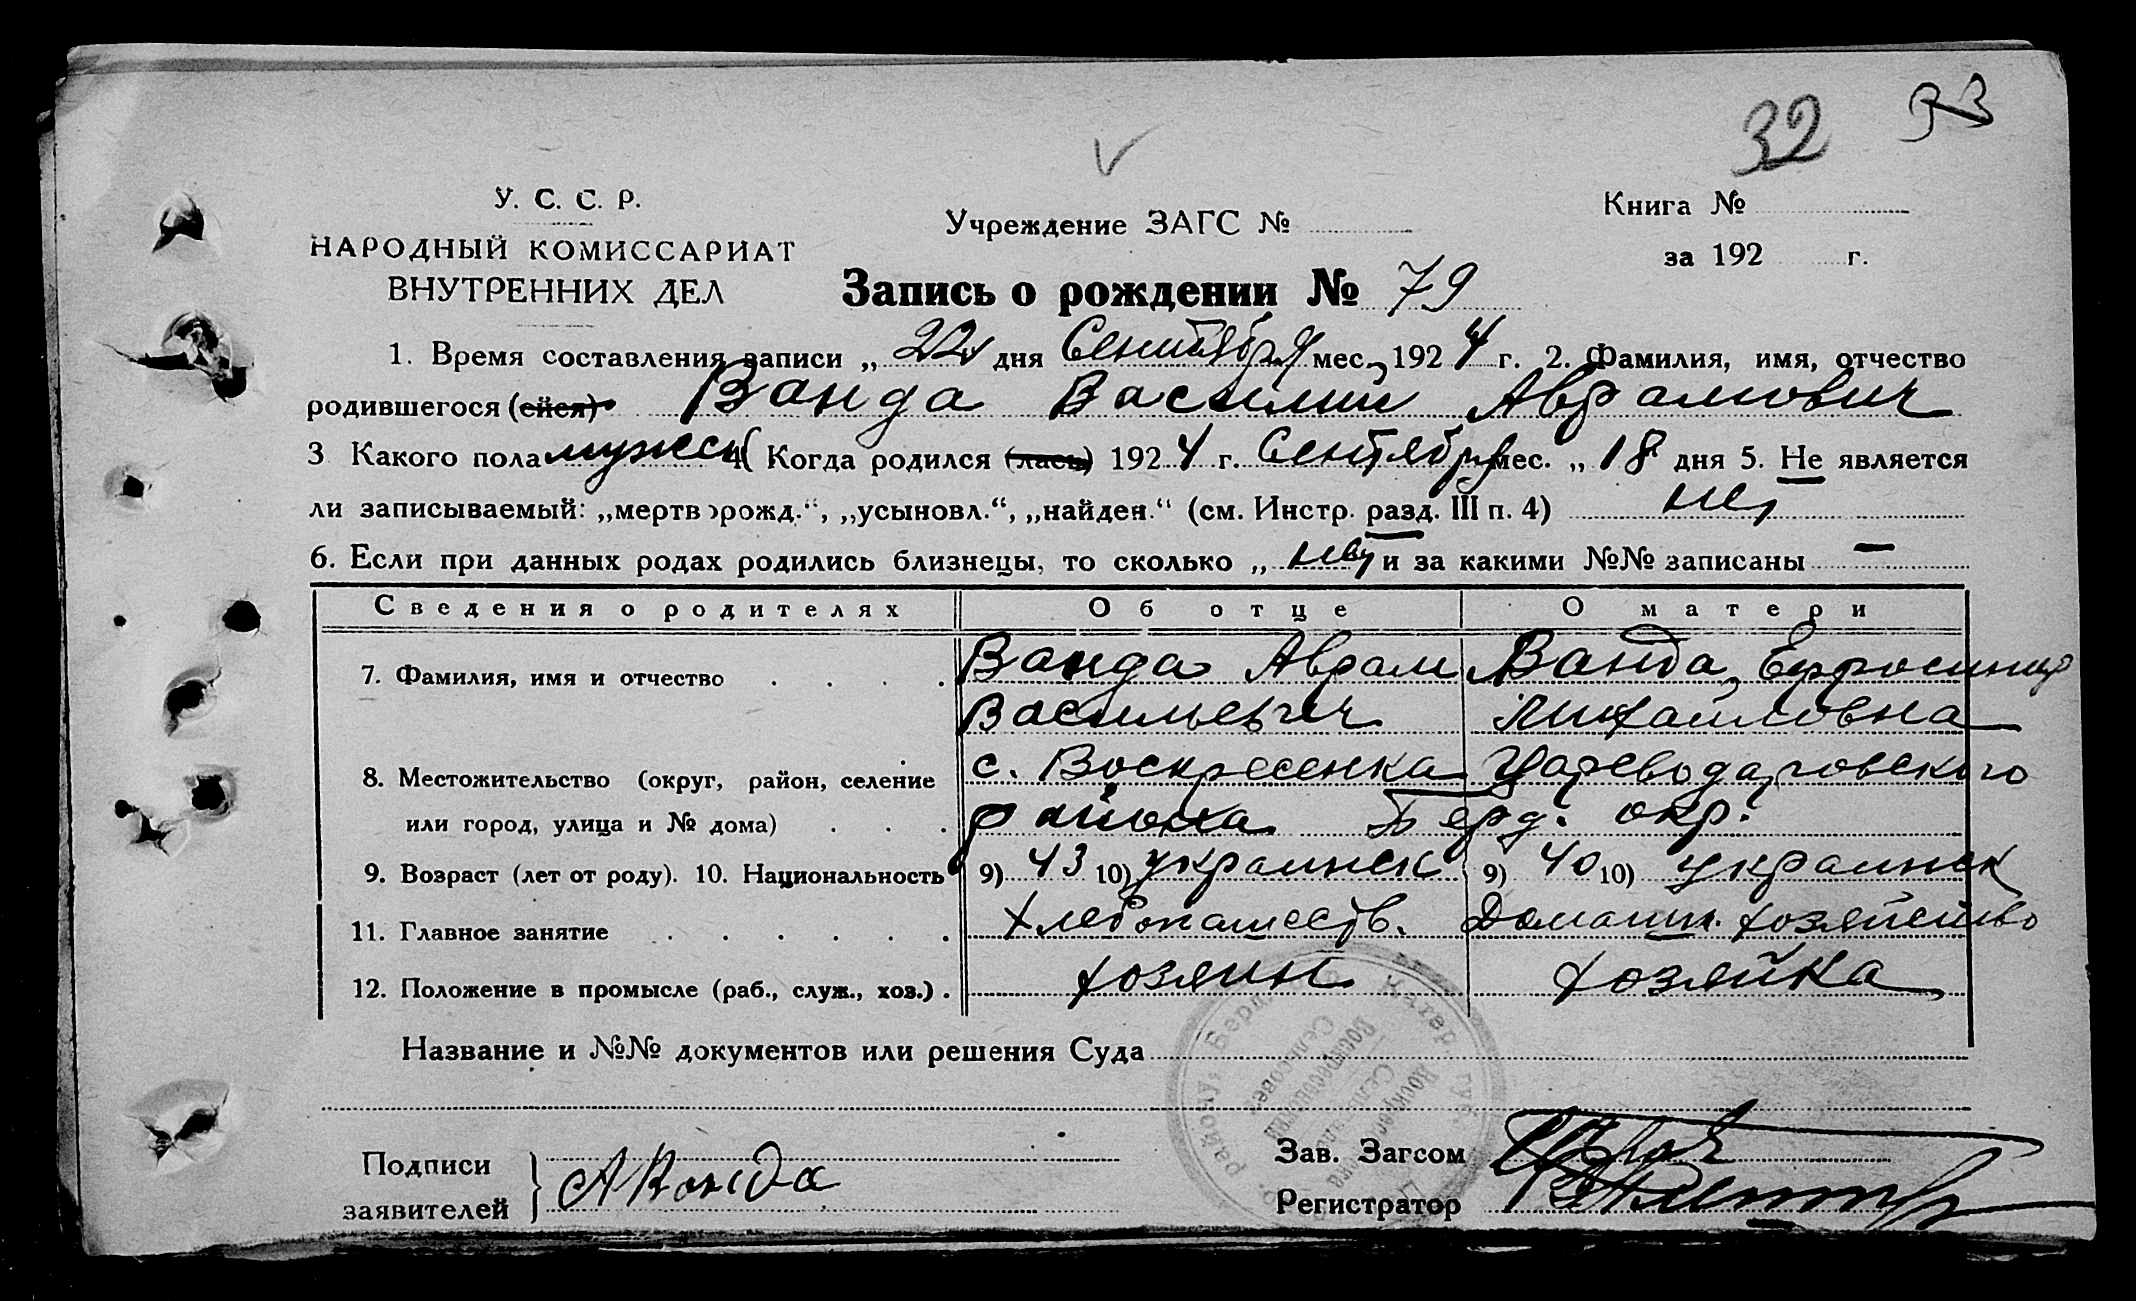 32 33
У. С. С. Р.
НАРОДНЫЙ КОМИССАРИАТ
ВНУТРЕННИХ ДЕЛ
Учреждение ЗАГС №
Книга №
за 192 г.
Запись о рождении № 79
1. Время составления записи „ 22 дня Сентября мес., 1924 г. 2. Фамилия, имя, отчество
родившегося (ейся) Ванда Василий Аврамович
3 Какого пола мужск 4 Когда родился (лась) 1924 г. Сентября мес. „ 18 дня 5. Не является
ли записываемый: „мертворожд.“, „усыновл.“, „найден.“ (см. Инстр. разд. III п. 4) нет
6. Если при данных родах родились близнецы, то сколько „ нет и за какими №№ записаны —
Сведения о родителях Об отце О матери
7. Фамилия, имя и отчество . . . . Ванда Аврам Ванда, Ефросиния
Васильевич Михайловна
8. Местожительство (округ, район, селение с. Воскресенка Цареводаровского
или город, улица и № дома) . . . района Берд. окр.
9. Возраст (лет от роду). 10. Национальность 9) 43 10) украинск 9) 40 10) украинск
11. Главное занятие . . . . . . Хлебопашеств. Домашн. хозяйство
12. Положение в промысле (раб., служ., хоз.) . хозяин хозяйка
Название и №№ документов или решения Суда
Подписи
заявителей
АВанда
Зав. Загсом
Регистратор